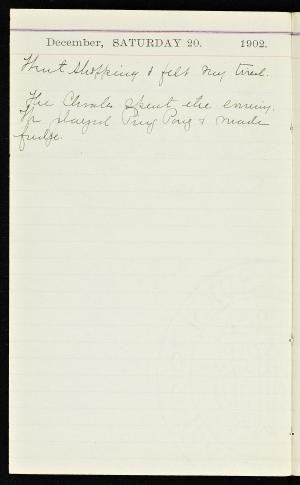 December, SATURDAY 20. 1902.
Went shopping & felt very tired.
The spent the evening.
We played Ping Pong & made
fudge.